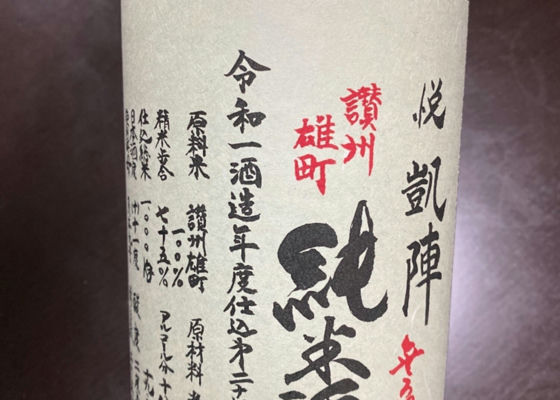 悦凱陣
讃州
雄町
純米酒
令和一酒造年度仕込第二十
原料米 讃州雄町 一〇〇% 原材料 米
精米歩合 七十五% アルコール分十
仕込総米 一〇〇〇kg
日本酒度 +十一度 酸度 二